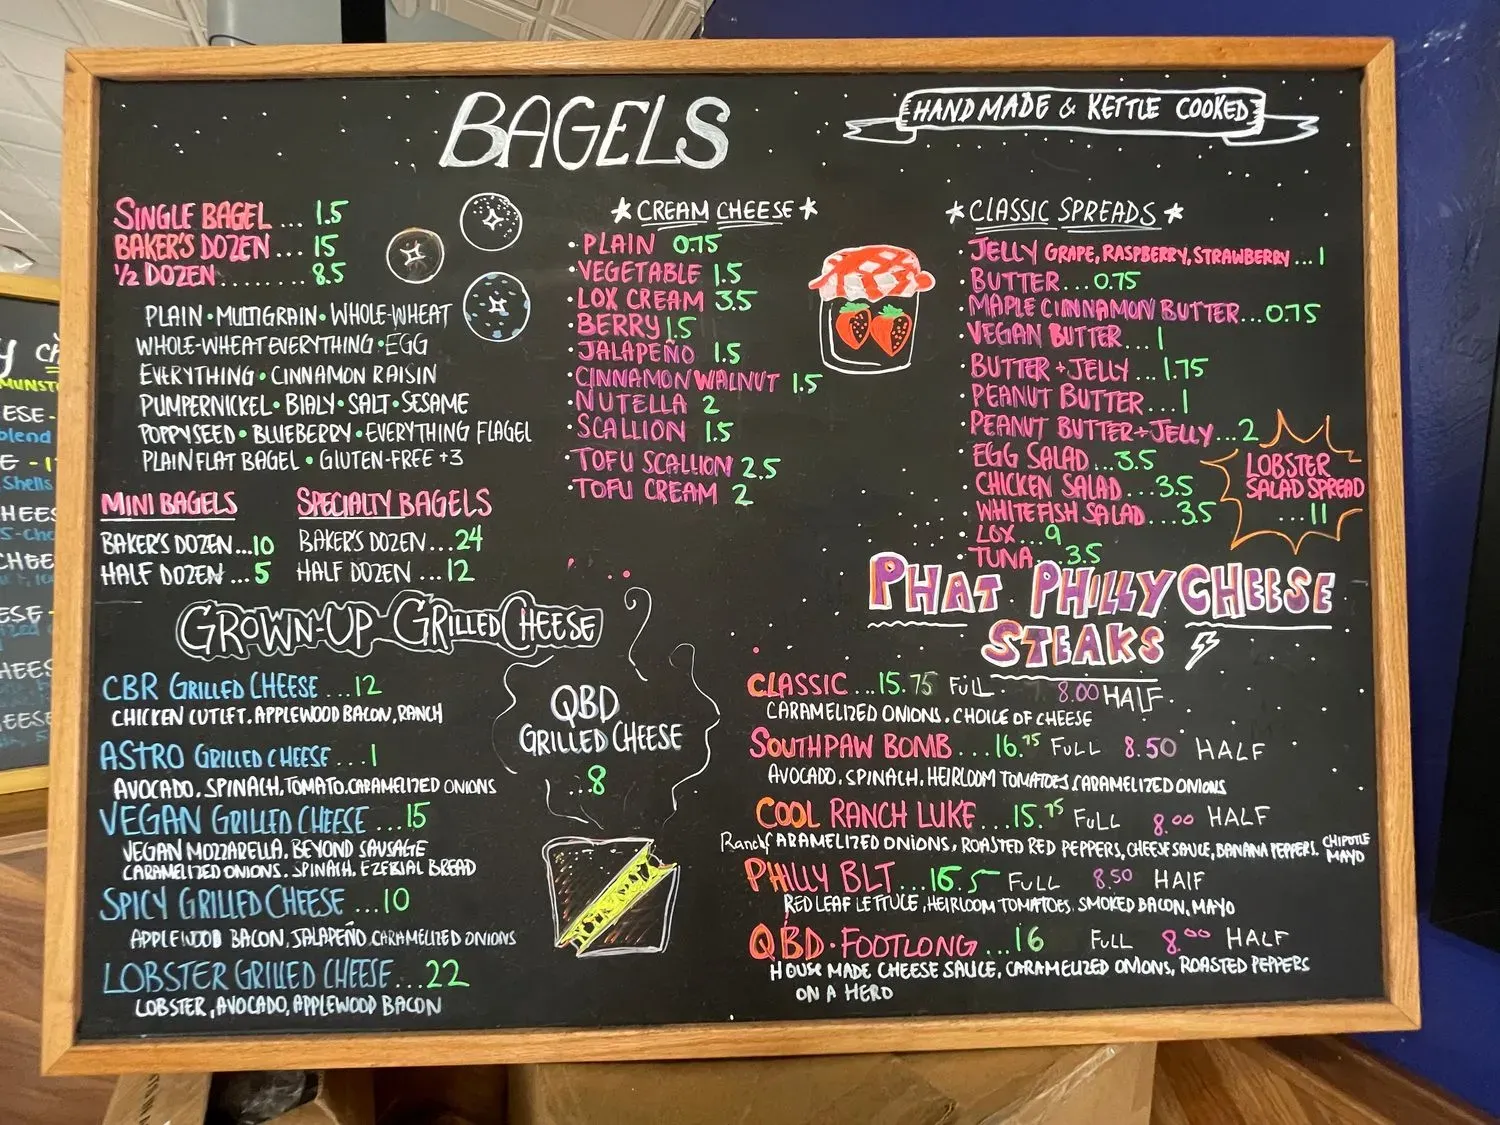 BAGELS
HANDMADE & KETTLE COOKED
SINGLE BAGEL ... 1.5
BAKER'S DOZEN ... 15
1/2 DOZEN ........ 8.5
PLAIN • MULTIGRAIN • WHOLE-WHEAT
WHOLE-WHEAT EVERYTHING • EGG
EVERYTHING • CINNAMON RAISIN
PUMPERNICKEL • BIALY • SALT • SESAME
POPPYSEED • BLUEBERRY • EVERYTHING FLAGEL
PLAIN FLAT BAGEL • GLUTEN-FREE +3
MINI BAGELS
BAKER'S DOZEN...10
HALF DOZEN ...5
SPECIALTY BAGELS
BAKER'S DOZEN...24
HALF DOZEN ...12
★ CREAM CHEESE ★
• PLAIN 0.75
• VEGETABLE 1.5
• LOX CREAM 3.5
• BERRY 1.5
• JALAPEÑO 1.5
• CINNAMON WALNUT 1.5
• NUTELLA 2
• SCALLION 1.5
• TOFU SCALLION 2.5
• TOFU CREAM 2
★ CLASSIC SPREADS ★
• JELLY GRAPE, RASPBERRY, STRAWBERRY ... 1
• BUTTER ... 0.75
• MAPLE CINNAMON BUTTER... 0.75
• VEGAN BUTTER... 1
• BUTTER + JELLY ... 1.75
• PEANUT BUTTER... 1
• PEANUT BUTTER + JELLY ... 2
• EGG SALAD ... 3.5
• CHICKEN SALAD ... 3.5
• WHITEFISH SALAD ... 3.5
• LOX ... 9
• TUNA ... 3.5
LOBSTER
SALAD SPREAD
... 11
GROWN-UP GRILLED CHEESE
CBR GRILLED CHEESE ...12
CHICKEN CUTLET. APPLEWOOD BACON, RANCH
ASTRO GRILLED CHEESE ...1
AVOCADO. SPINACH, TOMATO. CARAMELIZED ONIONS
VEGAN GRILLED CHEESE ...15
VEGAN MOZZARELLA. BEYOND SAUSAGE
CARAMELIZED ONIONS. SPINACH. EZEKIAL BREAD
SPICY GRILLED CHEESE ...10
APPLEWOOD BACON, JALAPEÑO CARAMELIZED ONIONS
LOBSTER GRILLED CHEESE ...22
LOBSTER, AVOCADO, APPLEWOOD BACON
QBD
GRILLED CHEESE
...8
PHAT PHILLY CHEESE
STEAKS
CLASSIC ...15.75 FULL 8.00 HALF
CARAMELIZED ONIONS. CHOICE OF CHEESE
SOUTHPAW BOMB ...16.75 FULL 8.50 HALF
AVOCADO. SPINACH, HEIRLOOM TOMATOES CARAMELIZED ONIONS
COOL RANCH LUKE ...15.75 FULL 8.00 HALF
Ranch CARAMELIZED ONIONS, ROASTED RED PEPPERS, CHEESE SAUCE, BANANA PEPPERS, CHIPOTLE
MAYO
PHILLY BLT ...16.5 FULL 8.50 HALF
RED LEAF LETTUCE, HEIRLOOM TOMATOES. SMOKED BACON, MAYO
QBD • FOOTLONG ...16 FULL 8.00 HALF
HOUSE MADE CHEESE SAUCE, CARAMELIZED ONIONS, ROASTED PEPPERS
ON A HERO